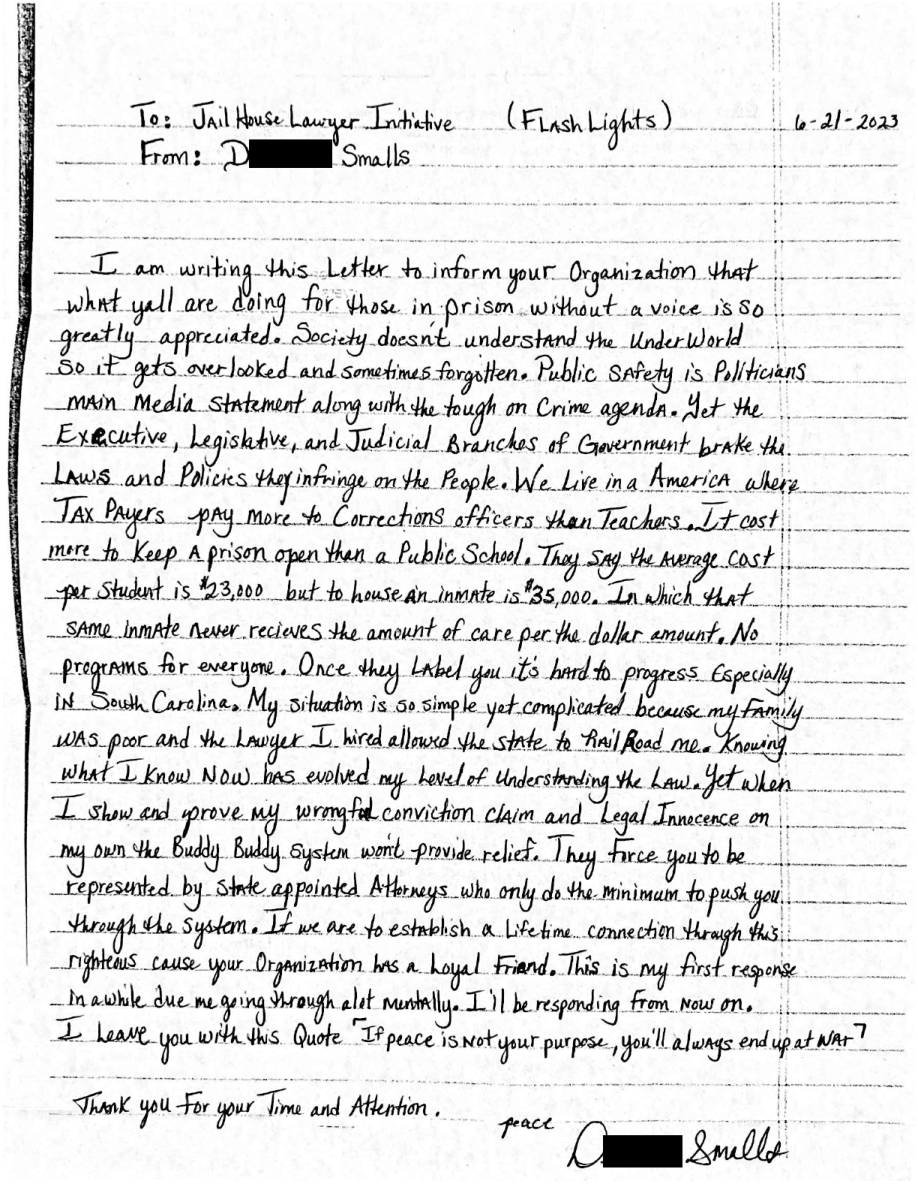 To: Jail House Lawyer Initiative (Flash Lights) 6-21-2023
From: D Smalls
I am writing this Letter to inform your Organization that
what yall are doing for those in prison without a voice is so
greatly appreciated. Society doesn't understand the UnderWorld
So it gets overlooked and sometimes forgotten. Public Safety is Politicians
main Media statement along with the tough on Crime agenda. Yet the
Executive, Legislative, and Judicial Branches of Government brake the
Laws and Policies they infringe on the People. We Live in a America where
Tax Payers pay more to Corrections officers than Teachers. It cost
more to Keep a prison open than a Public School. They say the average cost
per student is $23,000 but to house an inmate is $35,000. In which that
same inmate never recieves the amount of care per the dollar amount. No
programs for everyone. Once they Label you it's hard to progress Especially
in South Carolina. My situation is so simple yet complicated because my Family
was poor and the Lawyer I hired allowed the state to Rail Road me. Knowing
what I know now has evolved my Level of Understanding the Law. Yet when
I show and prove my wrongful conviction claim and Legal Innocence on
my own the Buddy Buddy system won't provide relief. They Force you to be
represented by State appointed Attorneys who only do the minimum to push you
through the system. If we are to establish a Lifetime connection through this
righteous cause your Organization has a Loyal Friend. This is my first response
in awhile due me going through alot mentally. I'll be responding from now on.
I Leave you with this Quote "If peace is not your purpose, you'll always end up at war"
Thank you For your Time and Attention.
peace
D Smalls